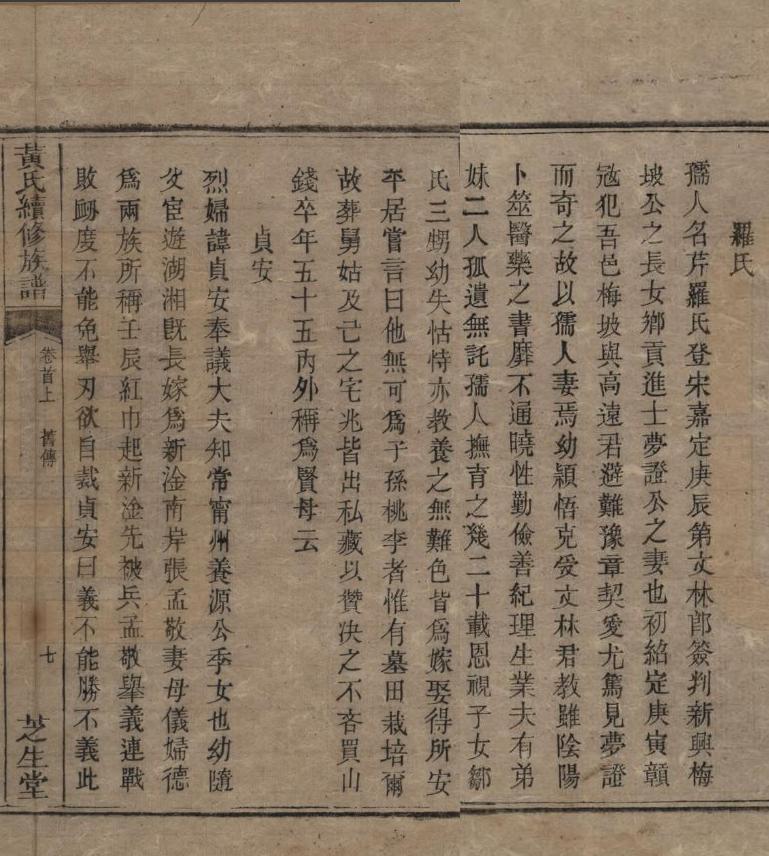 羅氏
孺人名芹羅氏登宋嘉定庚辰第文林郎簽判新興梅
坡公之長女鄉貢進士夢證公之妻也初紹定庚寅贛
寇犯吾邑梅坡與高遠君避難豫章契愛尤篤見夢證
而奇之故以孺人妻焉幼穎悟克受文林君教雖陰陽
卜筮醫藥之書靡不通曉性勤儉善紀理生業夫有弟
妹二人孤遺無託孺人撫育之幾二十載恩視子女鄒
氏三甥幼失怙恃亦教養之無難色皆為嫁娶得所安
平居嘗言曰他無可為子孫桃李者惟有墓田栽培爾
故葬舅姑及己之宅兆皆出私藏以贊决之不吝買山
錢卒年五十五內外稱為賢母云
貞安
烈婦諱貞安奉議大夫知常甯州養源公季女也幼隨
父宦遊湖湘既長嫁為新淦南岸張孟敬妻母儀婦德
為兩族所稱壬辰紅巾起新淦先被兵孟敬舉義連戰
敗衂度不能免舉刃欲自裁貞安曰義不能勝不義此
黃氏續修族譜
卷首上
舊傳
七
芝生堂